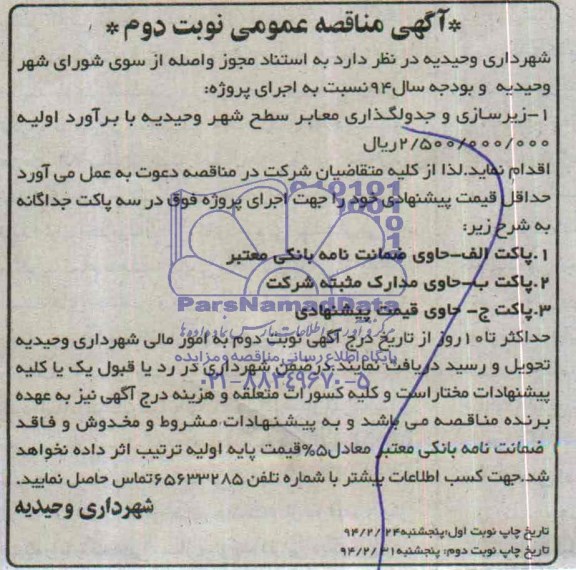 *آگهی مناقصه عمومی نوبت دوم*
شهرداری وحیدیه در نظر دارد به استناد مجوز واصله از سوی شورای شهر
وحیدیه و بودجه سال۹۴نسبت به اجرای پروژه:
۱-زیرسازی و جدولگذاری معابر سطح شهر وحیدیه با برآورد اولیه
۲/۵۰۰/۰۰۰/۰۰۰ریال
اقدام نماید.لذا از کلیه متقاضیان شرکت در مناقصه دعوت به عمل می آورد
حداقل قیمت پیشنهادی خود را جهت اجرای پروژه فوق در سه پاکت جداگانه
به شرح زیر:
۱.پاکت الف-حاوی ضمانت نامه بانکی معتبر
۲.پاکت ب-حاوی مدارک مثبته شرکت
ParsNamadData
۳.پاکت ج- حاوی قیمت پیشنهادی
حداکثر تا۱۰روز از تاریخ درج آگهی نوبت دوم به امور مالی شهرداری وحیدیه
پایگاه اطلاع رسانی مناقصه و مزایده
تحویل و رسید دریافت نمایند.درضمن شهرداری در رد یا قبول یک یا کلیه
۰۲۱-۸۸۳۴۹۶۷۰-۵
پیشنهادات مختاراست و کلیه کسورات متعلقه و هزینه درج آگهی نیز به عهده
برنده مناقصه می باشد و به پیشنهادات مشروط و مخدوش و فاقد
ضمانت نامه بانکی معتبر معادل۵%قیمت پایه اولیه ترتیب اثر داده نخواهد
شد.جهت کسب اطلاعات بیشتر با شماره تلفن ۶۵۶۳۳۲۸۵تماس حاصل نمایید.
شهرداری وحیدیه
تاریخ چاپ نوبت اول:پنجشنبه۹۴/۲/۲۴
تاریخ چاپ نوبت دوم: پنجشنبه۹۴/۲/۳۱